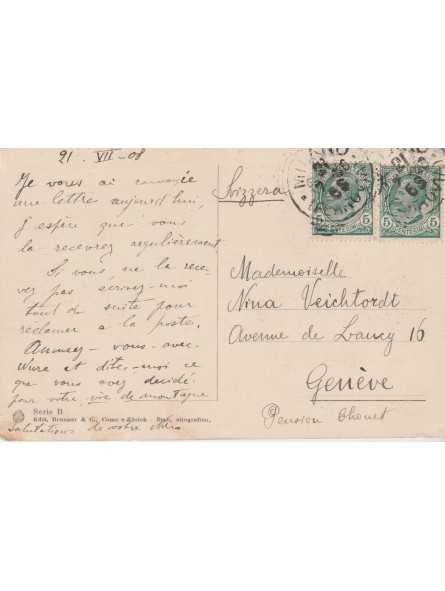 21. VII - 08
Je vous ai envoyée
une lettre aujourd'hui,
j'espère que vous
la recevrez regulièrement
Si vous ne la rece-
vez pas ecrivez-moi
tout de suite pour
reclamer a la poste.
Amusez-vous-avec-
et dites-moi ce
que vous avez decidé
pour votre de montagne
Serie B
Edit. Brunner & C., Como e Zürich - Stab. eliografico.
Salutations de votre
Svizzera
MILANO
5
5
Mademoiselle
Nina Veichtordt
Avenue de Lancy 16
Genève
Pension Chouet